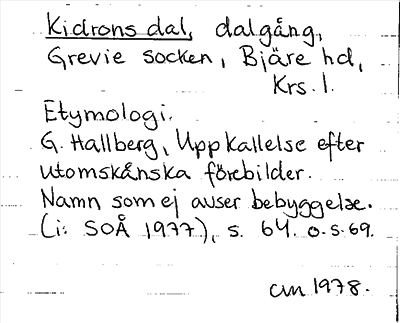 Kidrons dal, dalgång,
Grevie socken, Bjäre hd,
Krs. l.
Etymologi.
G. Hallberg, Uppkallelse efter
utomskånska förebilder.
Namn som ej avser bebyggelse.
(i: SOÅ 1977), s. 64. o. s. 69.
am 1978.